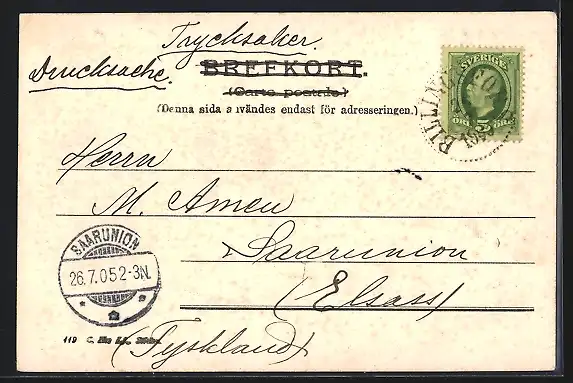 Trycksaker.
Drucksache.
BREFKORT.
(Carte postale)
(Denna sida användes endast för adresseringen.)
SVERIGE
ÖRE 5 ÖRE
Herrn
M. Amen
Saarunion
(Elsass)
(Tyskland)
SAARUNION
26.7.05 2-3N.
119